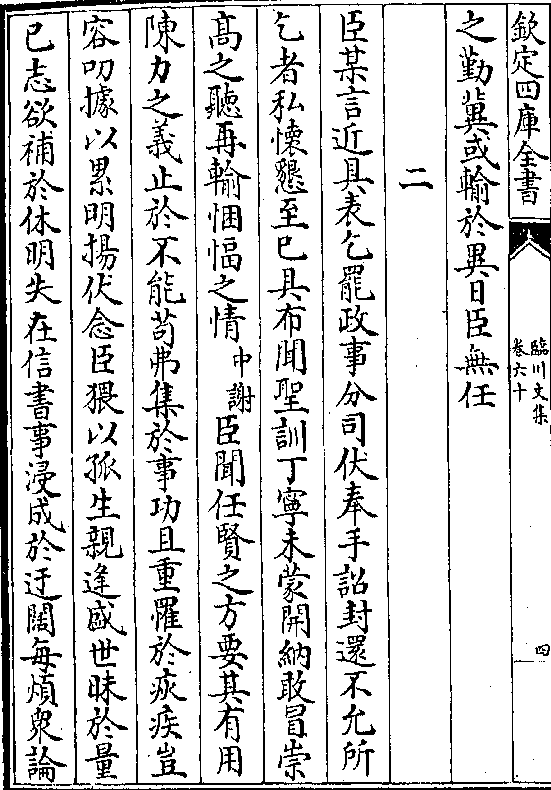 欽定四庫全書
臨川文集
卷六十
四
之勤冀或輸於異日臣無任
二
臣某言近具表乞罷政事分司伏奉手詔封還不允所
乞者私懷懇至已具布聞聖訓丁寧未蒙開納敢冒崇
高之聽再輸悃愊之情中謝臣聞任賢之方要其有用
陳力之義止於不能苟弗集於事功且重罹於疢疾豈
容叨據以累明揚伏念臣猥以孤生親逢盛世昧於量
已志欲補於休明失在信書事浸成於迂闊每煩衆論